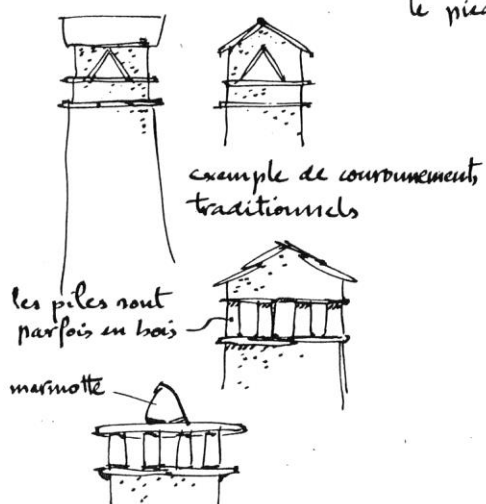 le pied
exemple de couronnements
traditionnels
les piles sont
parfois en bois
marmotte